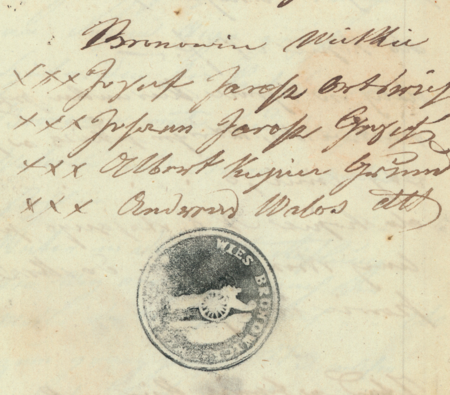 Bronowice Wielkie
xxx Jozef Jarosz Ortsrich
xxx Johann Jarosz Geschw
xxx Albert Kupiec Grund
xxx Andreas Walos dtto
WIES BRONOWICE